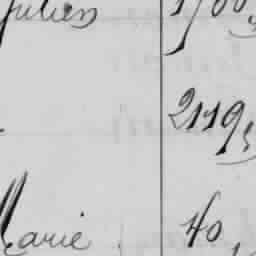 Julien 1700
2119
Marie 40